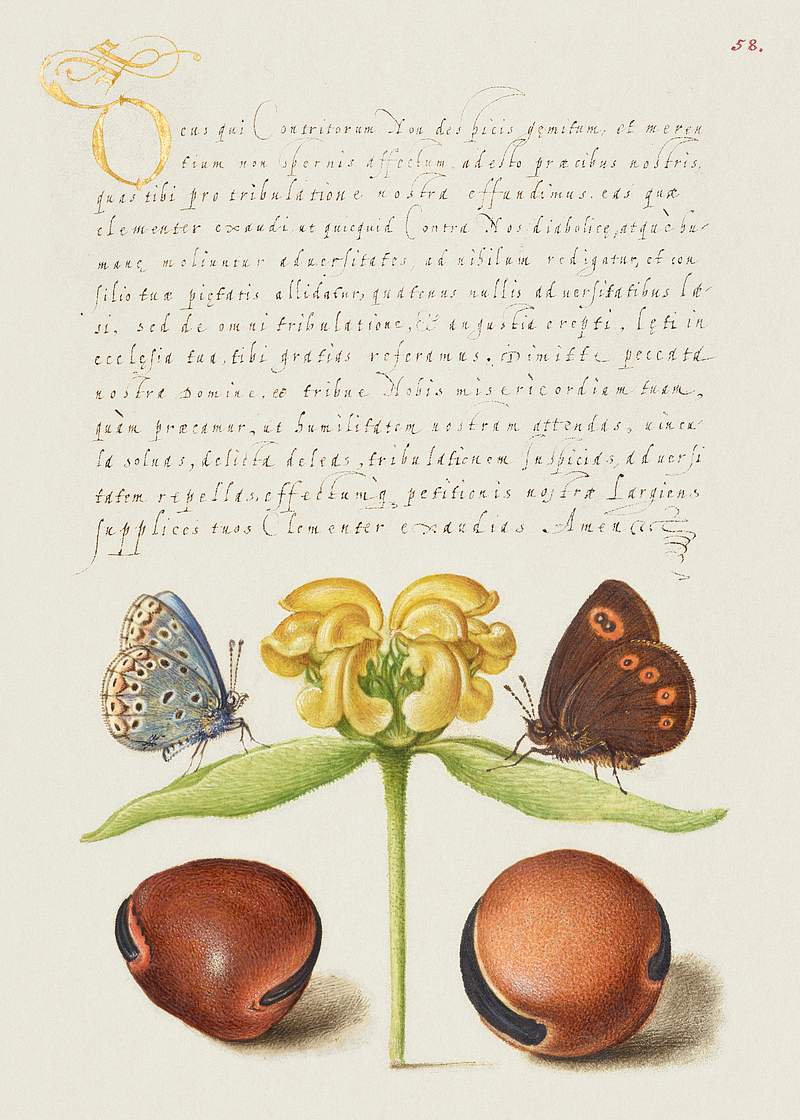 58.
Deus qui Contritorum Non despicis gemitum, et meren
tium non spernis affectum adesto præcibus nostris,
quas tibi pro tribulatione nostra effundimus. eas quæ
clementer exaudi ut quicquid Contra Nos diabolicę, atquè hu-
manę moliuntur aduersitates, ad nihilum redigatur, et con
silio tuæ piętatis allidatur, quatenus nullis aduersitatibus læ-
si, sed de omni tribulatione, & angustia erepti, lęti in
ecclęsia tua, tibi gratias referamus. Dimitte peccata
nostra Domine, et tribue Nobis misericordiam tuam,
quàm præcamur, ut humilitatem nostram attendas, uincu-
la soluas, delicta deleas, tribulationem Inspicias, aduersi
tatem repellas, effectumq petitionis nostræ Largiens
supplices tuos Clementer exaudias Amen